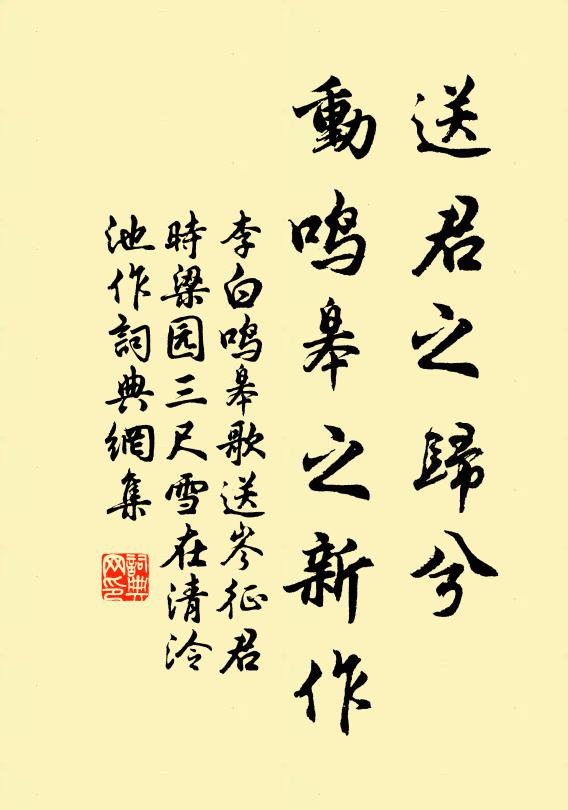 送君之歸兮
動鸣皋之新作
李白鸣皋歌送岑征君
時梁园三尺雪在清泠
池作詞典網集
詞典
网印